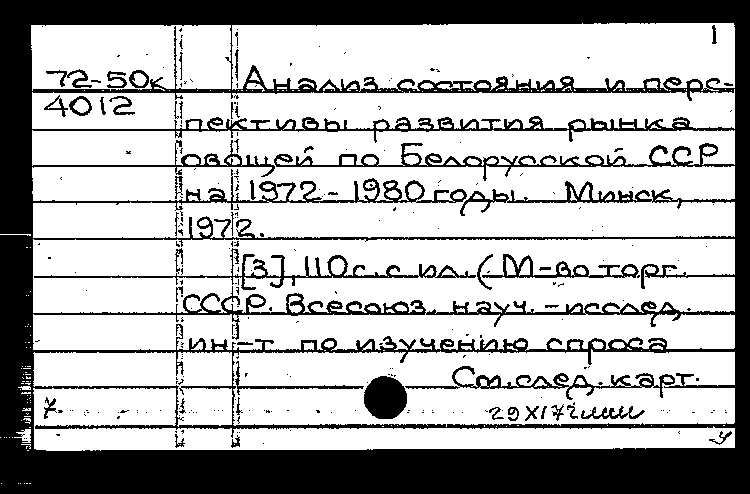 1
72-50к Анализ состояния и перс-
4012
пективы развития рынка
овощей по Белорусской ССР
на 1972-1980 годы. Минск,
1972.
[3], 110 с. с ил. (М-во торг.
СССР. Всесоюз. науч.-исслед.
ин-т по изучению спроса
См. след. карт.
7 29 XI 72